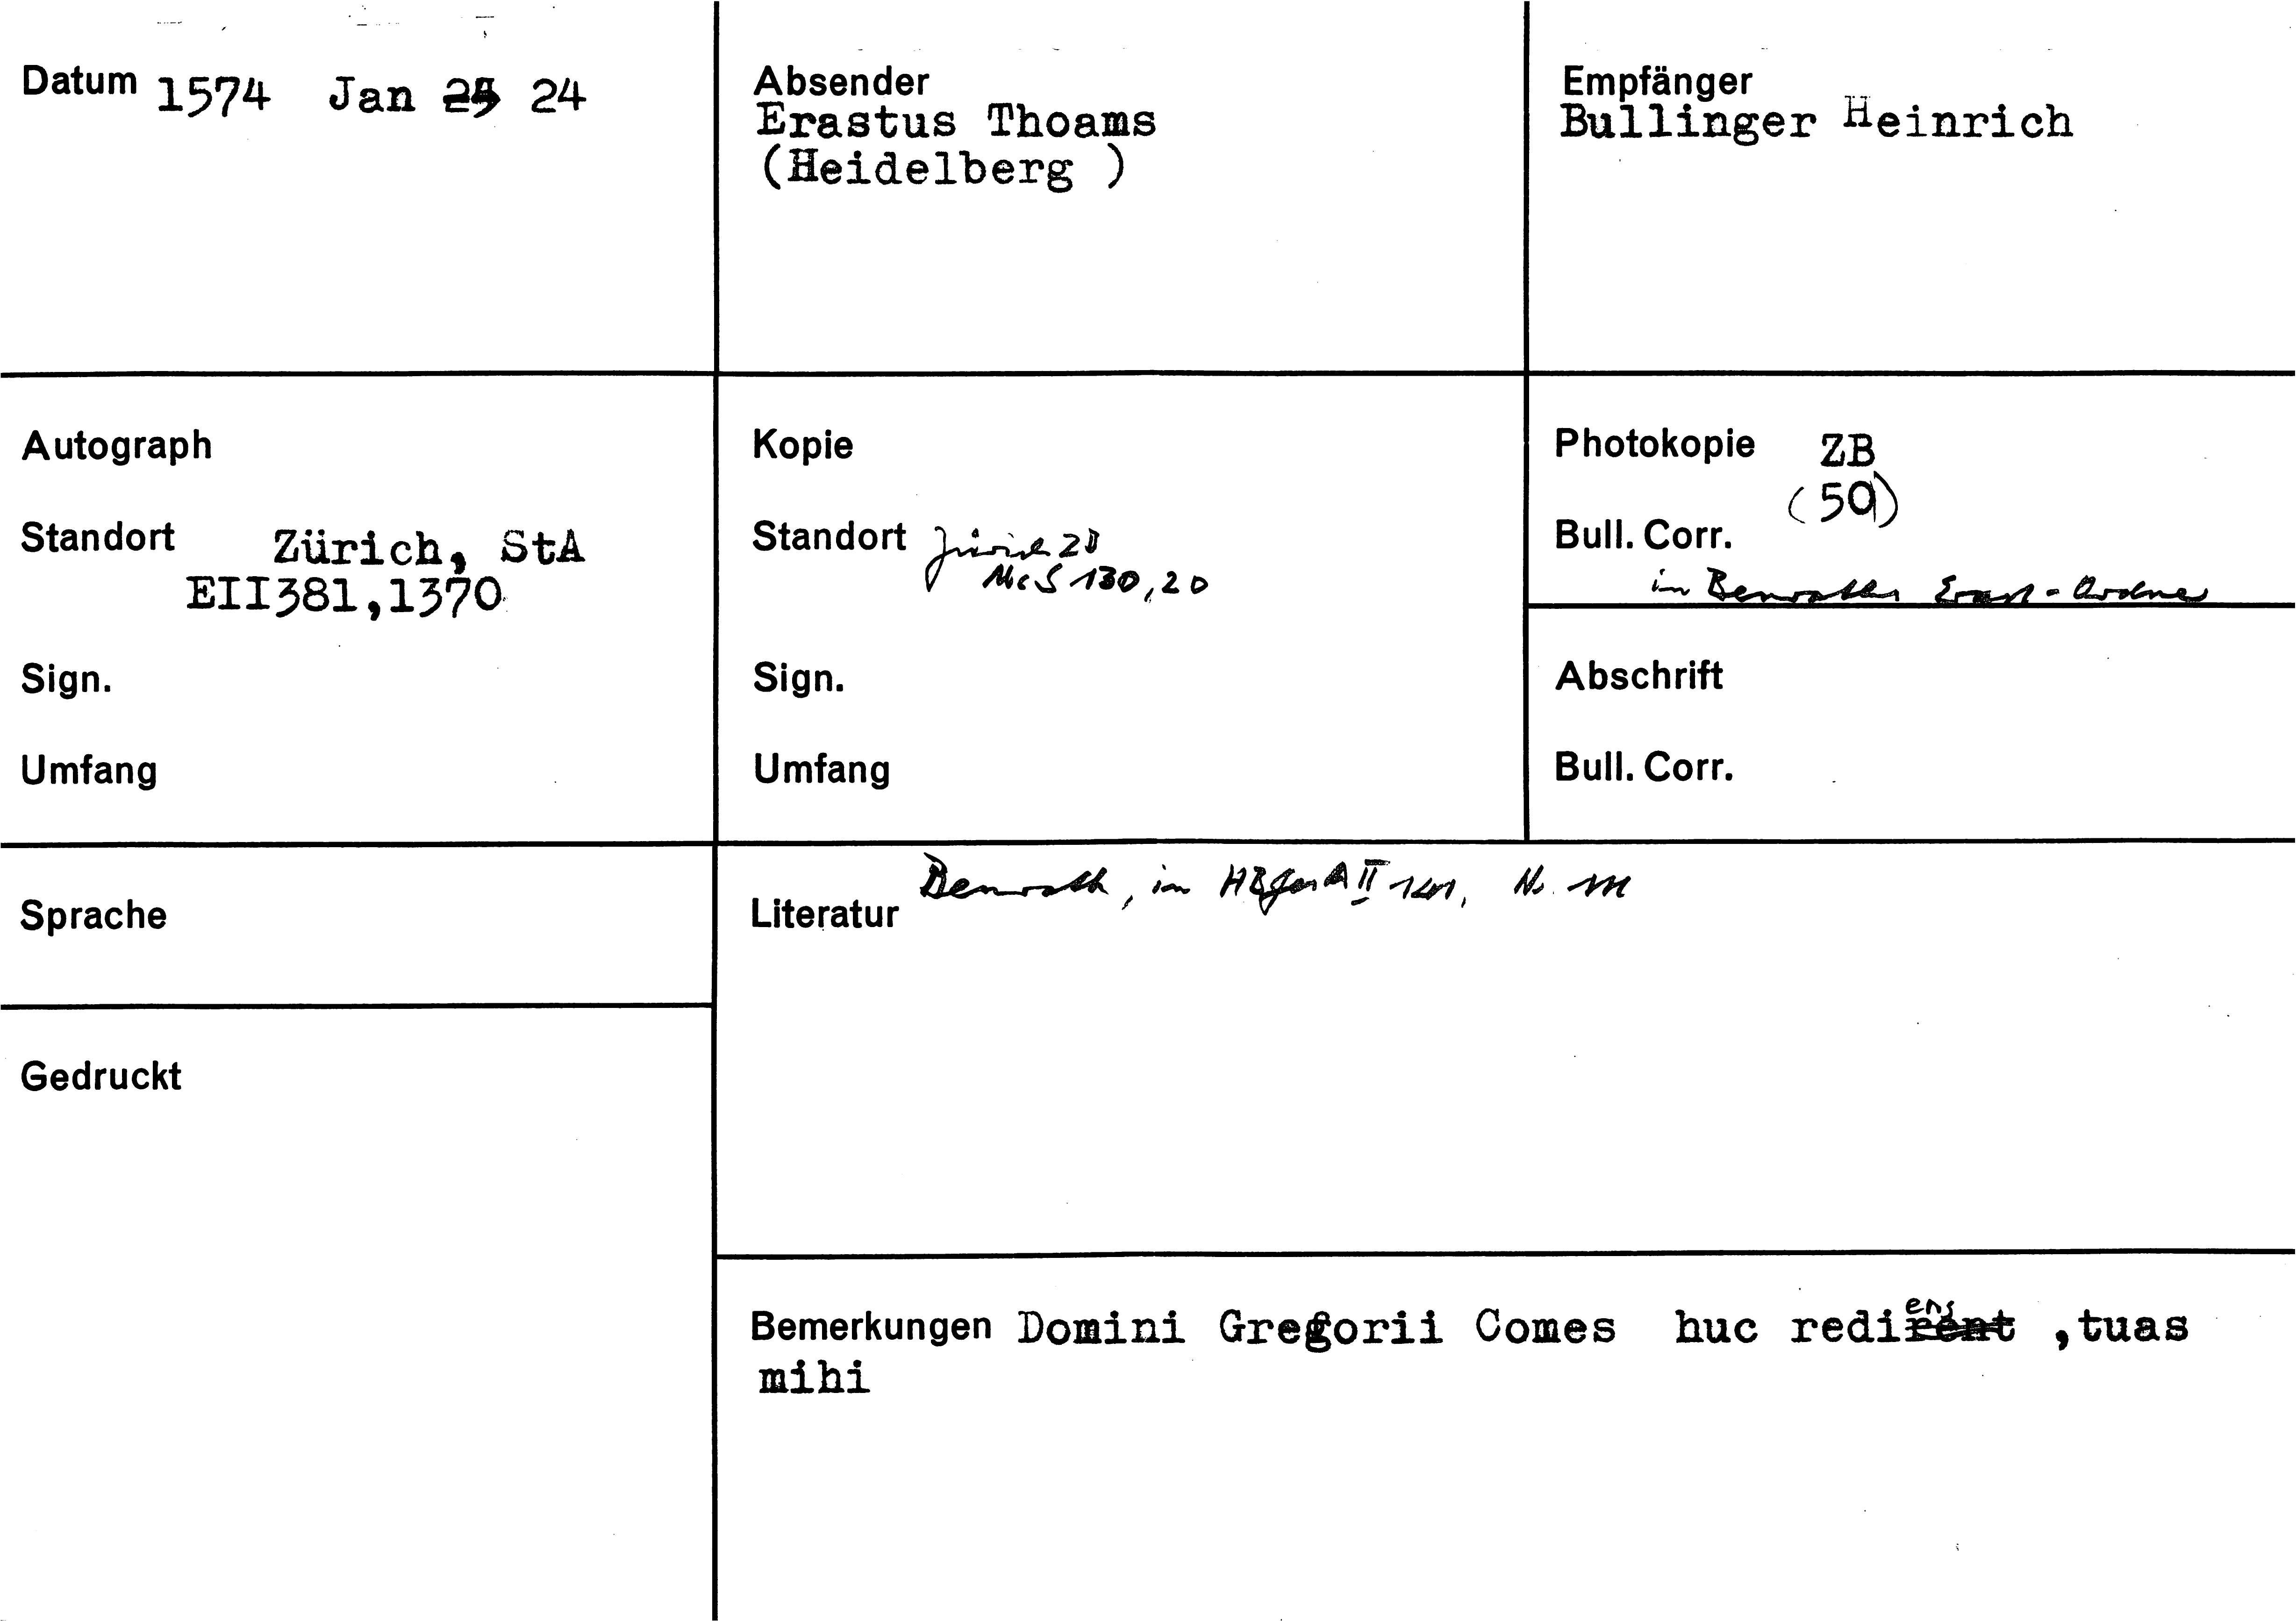 Datum 1574 Jan 24
Absender
Erastus Thoams
(Heidelberg )
Empfänger
Bullinger Heinrich
Autograph
Standort Zürich, StA
EII381,1370
Sign.
Umfang
Kopie
Standort Zürich ZB
Ms S 130, 20
Sign.
Umfang
Photokopie ZB
(50)
Bull. Corr.
in Benraths Erast-Ordner
Abschrift
Bull. Corr.
Sprache
Gedruckt
Literatur Benrath, in HBGesA II
Bemerkungen Domini Gregorii Comes huc rediens ,tuas
mihi